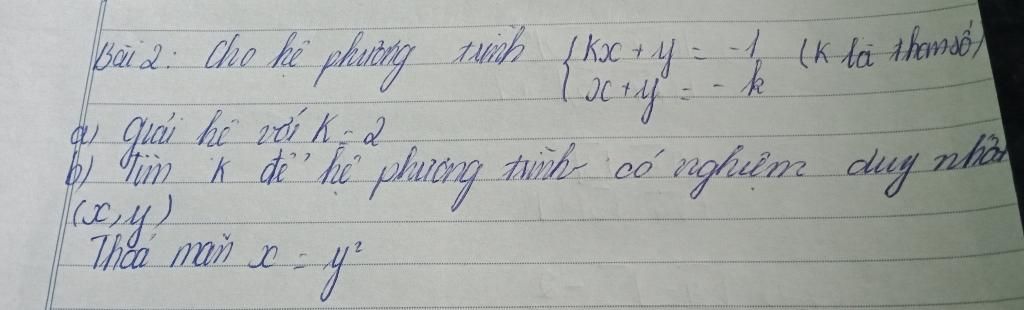 Bài 2: Cho hệ phương trình { Kx + y = -1 (K là tham số)
{ x + y = - k
a) giải hệ với K = 2
b) Tìm K để hệ phương trình có nghiệm duy nhất
(x, y)
Thoả mãn x = y²